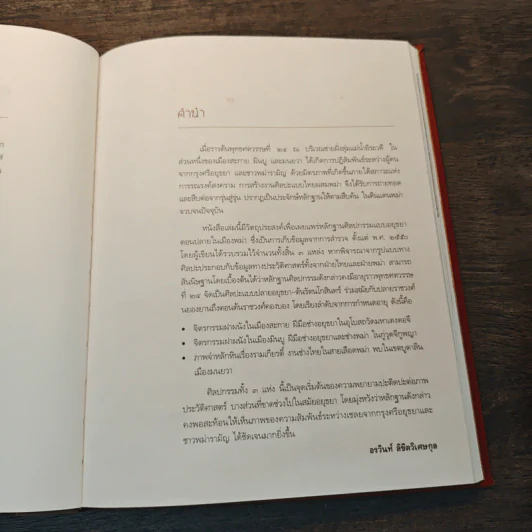 คำนำ
เมื่อราวต้นพุทธศตวรรษที่ ๒๔ ณ บริเวณชายฝั่งลุ่มแม่น้ำอิรวดี ใน
ส่วนหนึ่งของเมืองสะกาย มินบู และมนยวา ได้เกิดการปฏิสัมพันธ์ระหว่างผู้คน
จากกรุงศรีอยุธยา และชาวพม่ารามัญ ด้วยมิตรภาพที่เกิดขึ้นภายใต้สภาวะแห่ง
การรณรงค์สงคราม การสร้างงานศิลปะแบบไทยผสมพม่า จึงได้รับการถ่ายทอด
และสืบต่อจากรุ่นสู่รุ่น ปรากฏเป็นประจักษ์หลักฐานให้ตามสืบค้น ในดินแดนพม่า
จวบจนปัจจุบัน
หนังสือเล่มนี้มีวัตถุประสงค์เพื่อเผยแพร่หลักฐานศิลปกรรมแบบอยุธยา
ตอนปลายในเมืองพม่า ซึ่งเป็นการเก็บข้อมูลจากการสำรวจ ตั้งแต่ พ.ศ.
โดยผู้เขียนได้รวบรวมไว้จำนวนทั้งสิ้น ๓ แหล่ง หากพิจารณาจากรูปแบบทาง
ศิลปะประกอบกับข้อมูลทางประวัติศาสตร์ทั้งจากฝ่ายไทยและฝ่ายพม่า สามารถ
สันนิษฐานโดยเบื้องต้นได้ว่าหลักฐานศิลปกรรมดังกล่าวคงมีอายุราวพุทธศตวรรษ
ที่ ๒๔ จัดเป็นศิลปะแบบปลายอยุธยา-ต้นรัตนโกสินทร์ ร่วมสมัยกับปลายราชวงศ์
นยองยานถึงตอนต้นราชวงศ์คองบอง โดยเรียงลำดับจากการกำหนดอายุ ดังนี้คือ
• จิตรกรรมฝาผนังในเมืองสะกาย ฝีมือช่างอยุธยาในอุโบสถวัดมหาเตงดอจี
• จิตรกรรมฝาผนังในเมืองมินบู ฝีมือช่างอยุธยาและช่างพม่า ในกู่วุดจีกูพญา
• ภาพจำหลักหินเรื่องรามเกียรติ์ งานช่างไทยในสายเลือดพม่า พบในเขตบูดาลิน
เมืองมนยวา
ศิลปกรรมทั้ง ๓ แห่ง นี้เป็นจุดเริ่มต้นของความพยายามปะติดปะต่อภาพ
ประวัติศาสตร์ บางส่วนที่ขาดช่วงไปในสมัยอยุธยา โดยมุ่งหวังว่าหลักฐานดังกล่าว
คงพอสะท้อนให้เห็นภาพของความสัมพันธ์ระหว่างเชลยจากกรุงศรีอยุธยาและ
ชาวพม่ารามัญ ได้ชัดเจนมากยิ่งขึ้น
อรวินท์ ลิขิตวิเศษกุล